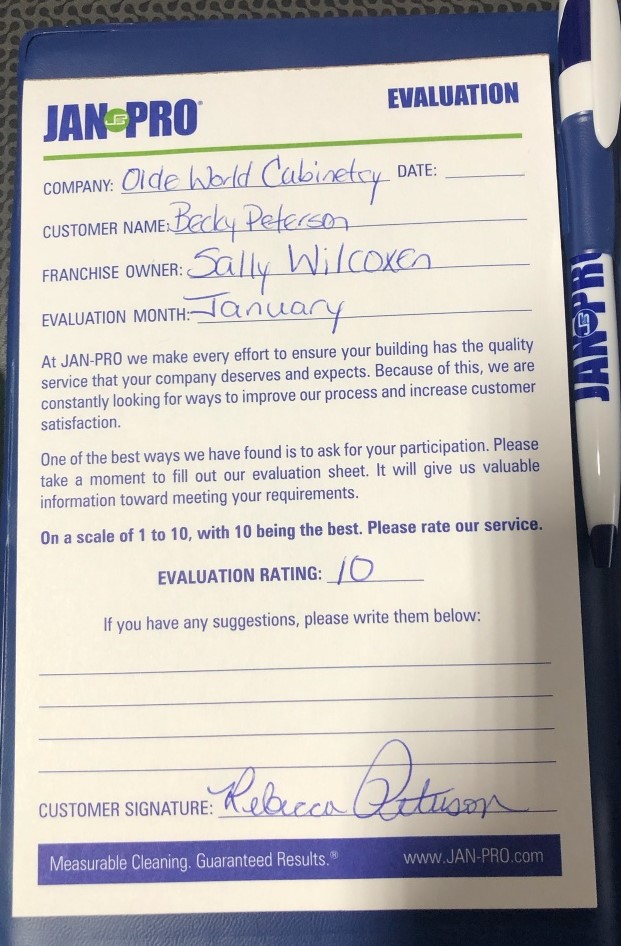 JAN-PRO® EVALUATION
COMPANY: Olde World Cabinetry DATE:
CUSTOMER NAME: Becky Peterson
FRANCHISE OWNER: Sally Wilcoxen
EVALUATION MONTH: January
At JAN-PRO we make every effort to ensure your building has the quality
service that your company deserves and expects. Because of this, we are
constantly looking for ways to improve our process and increase customer
satisfaction.
One of the best ways we have found is to ask for your participation. Please
take a moment to fill out our evaluation sheet. It will give us valuable
information toward meeting your requirements.
On a scale of 1 to 10, with 10 being the best. Please rate our service.
EVALUATION RATING: 10
If you have any suggestions, please write them below:
CUSTOMER SIGNATURE: Rebecca Peterson
Measurable Cleaning. Guaranteed Results.® www.JAN-PRO.com
JAN-PRO